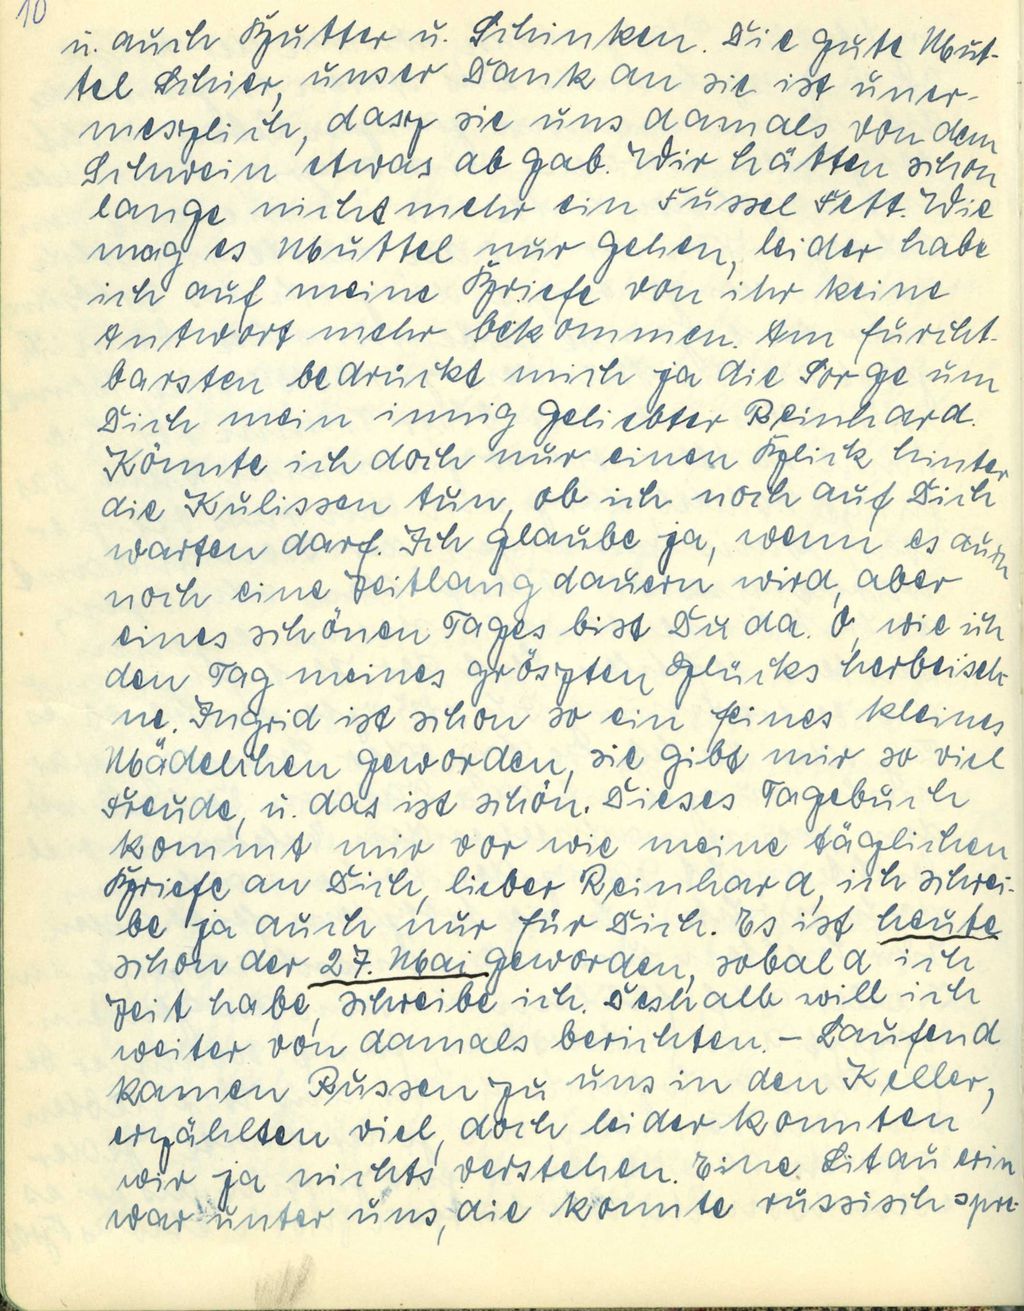 10
u. auch Butter u. Schinken. Die gute Mut-
tel Schier, unser Dank an sie ist uner-
messlich, dass sie uns damals von dem
Schwein etwas ab gab. Wir hätten schon
lange nicht mehr ein Fussel Fett. Wie
mag es Muttel nur gehen, leider habe
ich auf meine Briefe von ihr keine
Antwort mehr bekommen. Am furcht-
barsten bedrückt mich ja die Sorge um
Dich mein innig geliebter Reinhard.
Könnte ich doch nur einen Blick hinter
die Kulissen tun, ob ich noch auf Dich
warten darf. Ich glaube ja, wenn es auch
noch eine Zeitlang dauern wird, aber
eines schönen Tages bist Du da. O, wie ich
den Tag meines grössten Glücks herbeiseh-
ne. Ingrid ist schon so ein feines kleines
Mädelchen geworden, sie gibt mir so viel
Freude, u. das ist schön. Dieses Tagebuch
kommt mir vor wie meine täglichen
Briefe an Dich, lieber Reinhard, ich schrei-
be ja auch nur für Dich. Es ist heute
schon der 27. Mai geworden, sobald ich
Zeit habe, schreibe ich. Deshalb will ich
weiter von damals berichten. – Laufend
kamen Russen zu uns in den Keller,
erzählten viel, doch leider konnten
wir ja nichts verstehen. Eine Litauerin
war unter uns, die konnte russisch spre-